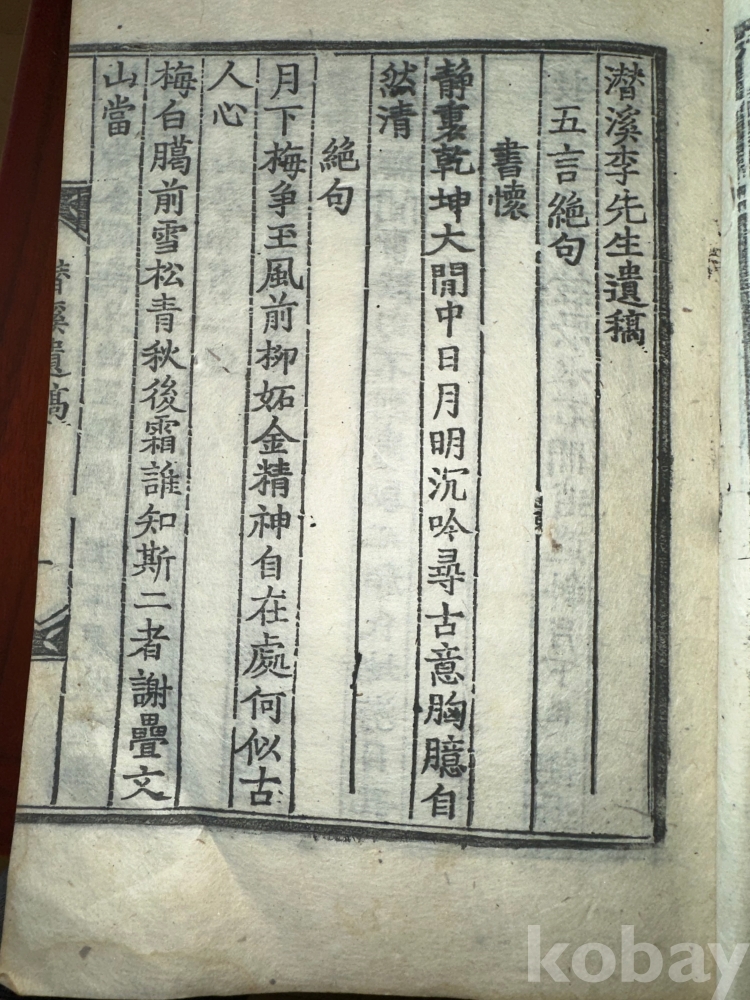 潛溪李先生遺稿
五言絶句
書懷
静裏乾坤大閒中日月明沉吟尋古意胸臆自
然清
絶句
月下梅争玉風前柳妬金精神自在處何似古
人心
梅白臈前雪松青秋後霜誰知斯二者謝疊文
山當
潛溪遺稿
一
kobay